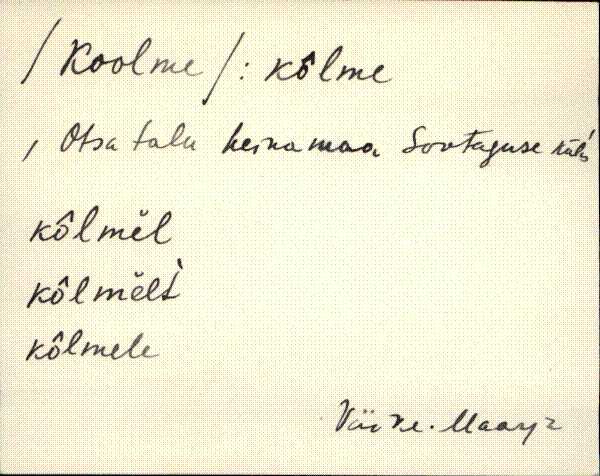 / Koolme / : kôlme
, Otsa talu heinamaa Sootaguse küls
kôlmĕl
kôlmĕlt̀
kôlmele
Väike-Maarja